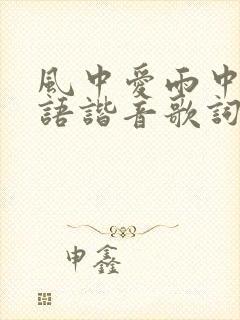 風中愛雨中
語諧音歌詞
申鑫